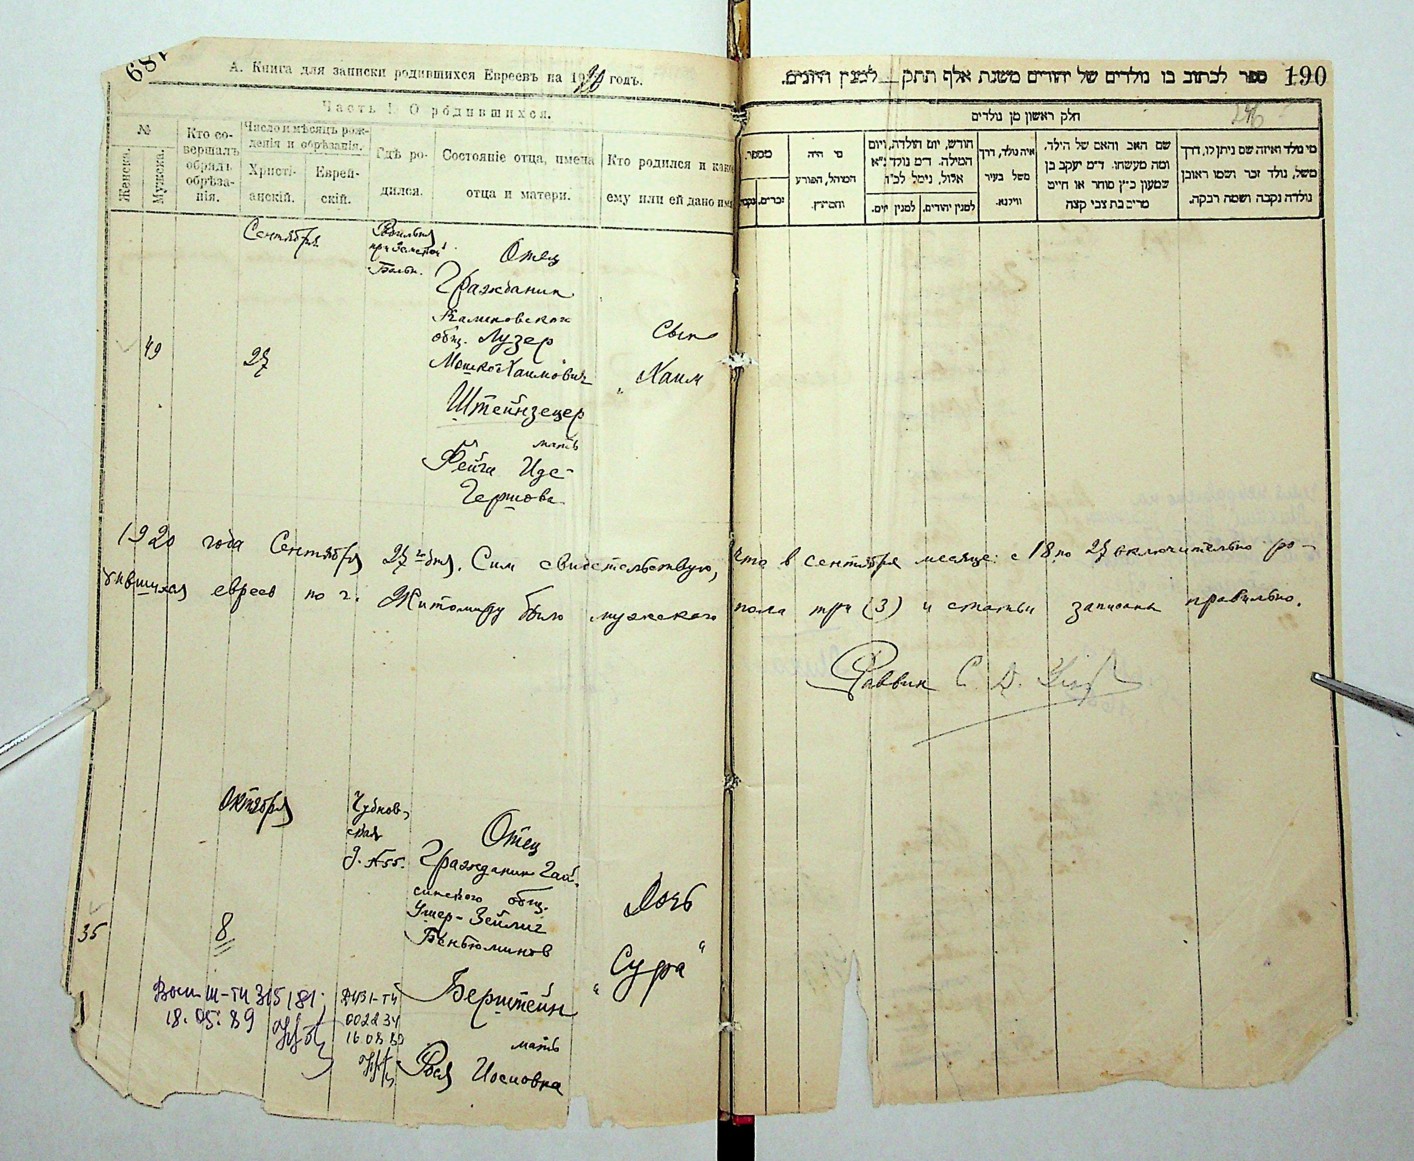 189
А. Книга для записки родившихся Евреевъ на 1920 годъ.
Часть I. О родившихся.
№
Женска.
Мужска.
Кто со-
вершалъ
обрядъ
обрѣза-
нія.
Число и мѣсяцъ рож-
денія и обрѣзанія.
Христі-
анскій.
Еврей-
скій.
Гдѣ ро-
дился.
Состояніе отца, имена
отца и матери.
Кто родился и какое
ему или ей дано имя
Сентября
49
27
Отец
Гражданин
общ. Лузер
Мошкой Хаимович
Штейнзецер
мать
Фейга Иде-
Гершова
Сын
„Хаим
1920 года Сентября 27 дня. Сим свидетельствую, что в сентябре месяце с 18 по 27 включительно ро-
дившихся евреев по г. Житомиру было мужского пола три (3) и статьи записаны правильно.
Раввин С. Д.
Октября
35
8
Чудновская
д. № 55.
Отец
Гражданин Гай-
синского общ.
Ушер-Зейлиг
Беньюминов
Берштейн
мать
Рося Иосиовна
Дочь
„Сура“
315/81
18.05.89
002234
16.08.89
ספר לכתוב בו נולדים של יהודים משנת אלף תתק למנין היונים.
190
חלק ראשון מן נולדים
מספר.
זכרים.
נקבות
מי היה
המוהל, הפורע
והמוצץ.
חודש, יום הולדה, ויום
המילה. ד״מ נולד י״א
אלול, נימל לכ״ד
למנין יהודים.
למנין יונים.
איה נולד, דרך
משל בעיר
ווילנא.
שם האב והאם של הילד.
ומה מעשהו. ד״מ יעקב בן
שמעון כ״ץ סוחר או חייט
מרים בת צבי קצב
מי נולד ואיזה שם ניתן לו, דרך
משל, נולד זכר ושמו ראובן
נולדה נקבה ושמה רבקה.